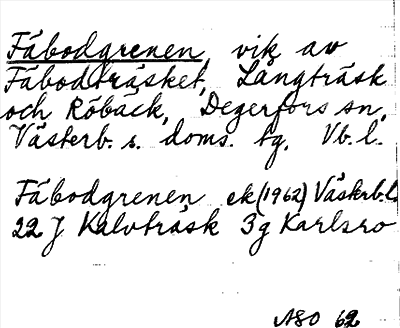 Fäbodgrenen, vik av
Fäbodträsket, Långträsk
och Röbäck, Degerfors sn,
Västerb. s. doms. tg. Vb. l.
Fäbodgrenen ek (1962) Västerb.l.
22 J Kalvträsk 3g Karlsro
ASO 62